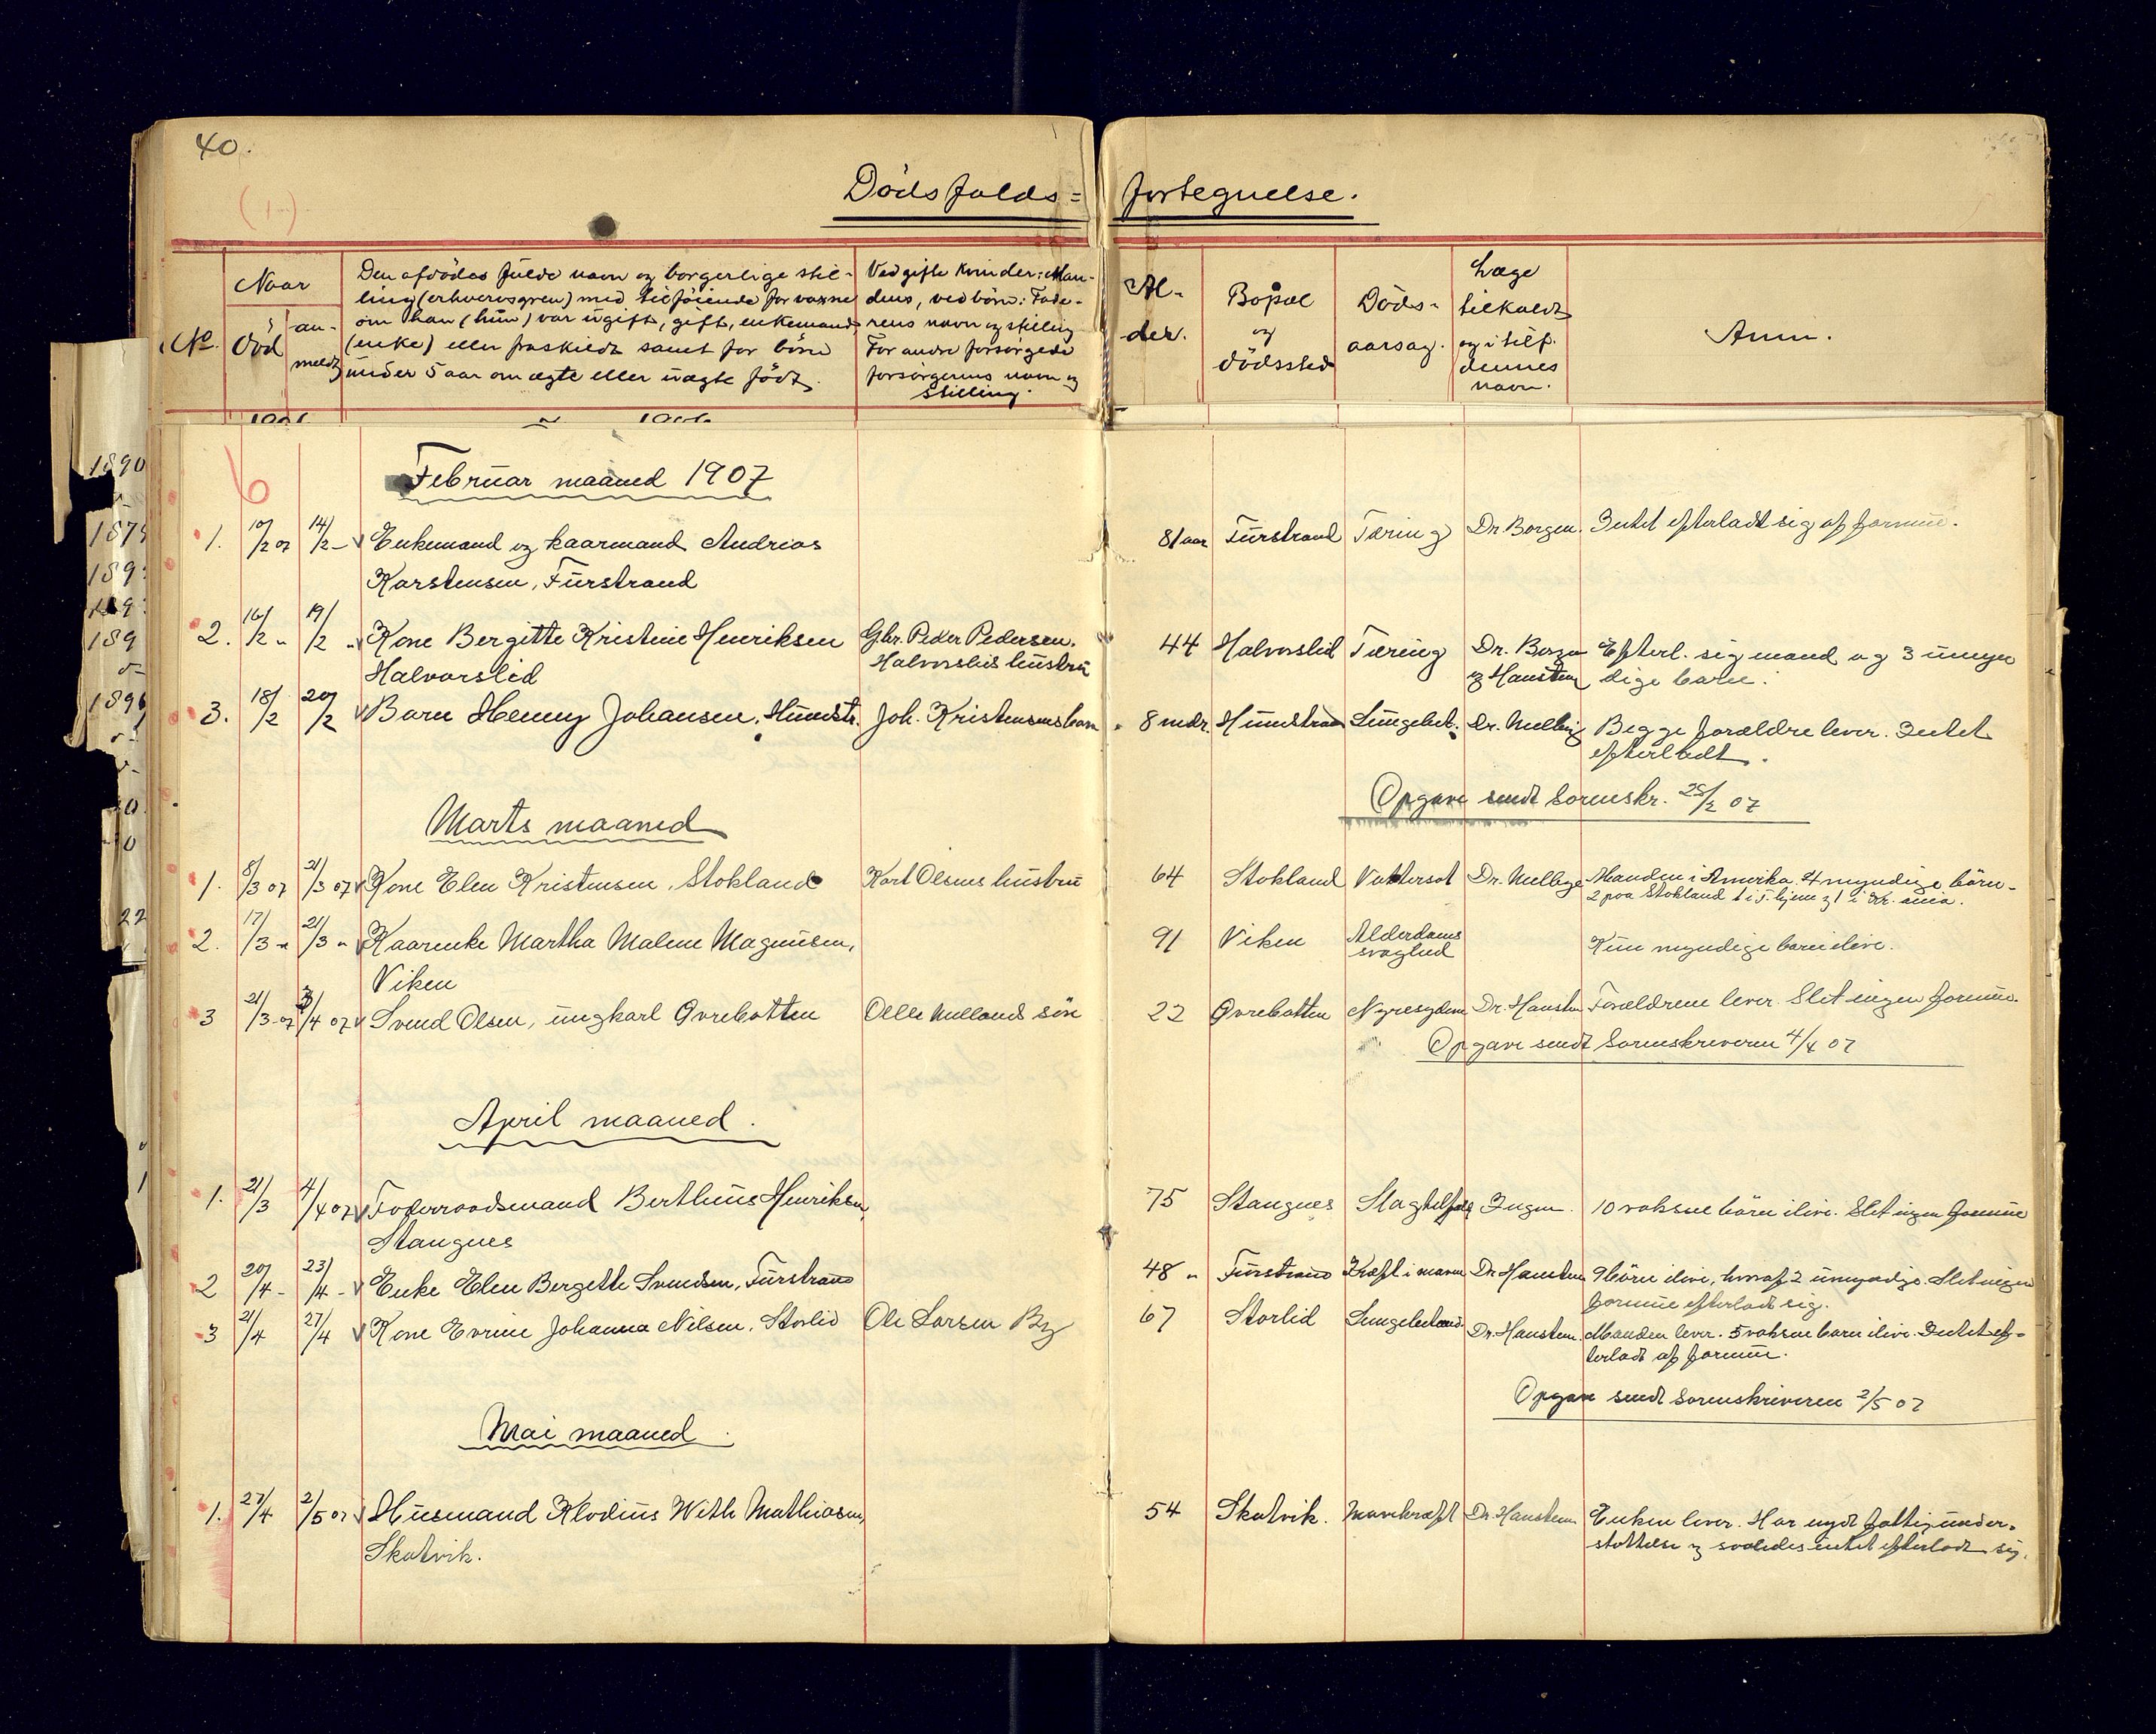 40.
Dödsfalds= fortegnelse.
No.
Naar
död
an-
meldt
Den afdödes fulde navn og borgerlige stil-
ling (erhvervsgren) med tilföiende for voxne
om han (hun) var ugift, gift, enkemand
(enke) eller fraskildt samt for börn
under 5 aar om ægte eller uægte födt.
Ved gifte kvinder: Man-
dens, ved börn: Fade-
rens navn og stilling
For andre forsörgede
forsörgerens navn og
stilling.
Al-
der.
Bopæl
og
dödssted
Döds-
aarsag.
Læge
tilkaldt
og i tilf.
dennes
navn.
Anm.
Februar maaned 1907
1. 10/2 07 14/2 - Enkemand og kaarmand Andrias 81 aar Furstrand Tæring Dr. Borgen. Intet efterladt sig af formue.
Karstensen, Furstrand
2. 16/2 " 19/2 " Kone Bergitte Kristine Henriksen Gbr. Peder Pedersen. 44 Halvorslid Tæring Dr. Borgen Efterl. sig mand og 3 umyn
Halvorslid Halvorslids hustru og Hansteen dige barn.
3. 18/2 20/2 Barn Henny Johansen, Hundstr. Joh. Kristensens barn 8 mdr. Hundstrand Lungebet. Dr. Melbye Begge forældre lever. Intet
efterladt.
Opgave sendt Sorenskr. 28/2 07
Marts maaned
1. 8/3 07 21/3 07 Kone Elen Kristensen, Stokland Karl Olsens hustru 64 Stokland Vattersot Dr. Melbye Manden i Amerika. 4 myndige börn-
2 paa Stokland 1 i T. hjem og 1 i Kr. ania.
2. 17/3 " 21/3 " Kaarenke Martha Malene Magnusen, 91 Viken Alderdoms Kun myndige barn ilive.
Viken svaghed
3 21/3 07 3/4 07 Svend Olsen, ungkarl Øvrebotten Olle Mellands sön 22 Øvrebotten Nyresygdom Dr. Hansteen Forældrene lever. Slet ingen formue.
Opgave sendt Sorenskriveren 4/4 07
April maaned.
1. 21/3 4/4 07 Foderraadsmand Berthius Henriksen, 75 Stangnes Slagtilfæld Ingen. 10 voksne börn ilive. Slet ingen formue
Stangnes
2 20/4 - 23/4 - Enke Elen Bergette Svendsen, Furstrand 48 " Furstrand Kræft i maven Dr. Hansteen 9 börn ilive, hvoraf 2 umyndige. Slet ingen
formue efterladt sig.
3 21/4 27/4 Kone Evrine Johanna Nilsen, Storlid Ole Larsen By 67 Storlid Lungebetænd. Dr. Hansteen. Manden lever. 5 voksne barn ilive. Intet ef-
terladt af formue.
Opgave sendt Sorenskriveren 2/5 07
Mai maaned.
1. 27/4 2/5 07 Husmand Klodius With Mathiasen, 54 Skatvik. Mavekræft Dr. Hansteen Enken lever. Har nydt fattigunder-
Skatvik. stöttelse og saaledes intet efterladt sig.